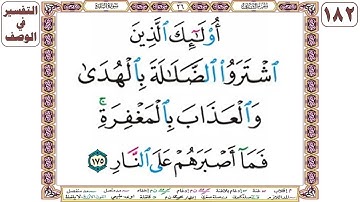 التفسير
في
الوصف
٢٦
١٨٢
أُو۟لَـٰٓئِكَ ٱلَّذِينَ
ٱشْتَرَوُا۟ ٱلضَّلَـٰلَةَ بِٱلْهُدَىٰ
وَٱلْعَذَابَ بِٱلْمَغْفِرَةِ ۚ
فَمَآ أَصْبَرَهُمْ عَلَى ٱلنَّارِ ١٧٥